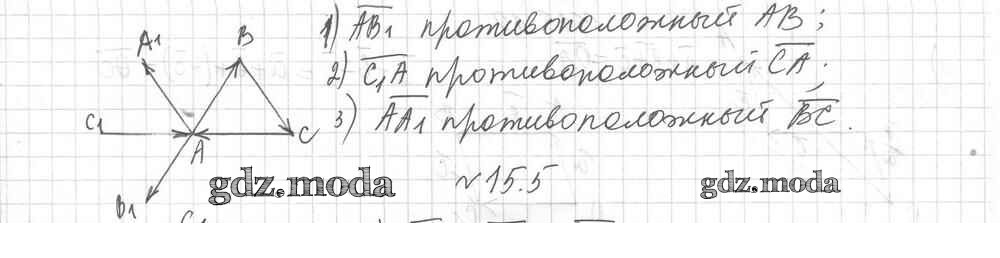 1) AB₁ противоположный AB;
2) C₁A противоположный CA;
3) AA₁ противоположный BC.
A1
B
C1
A
C
B1
gdz.moda
№15.5
gdz.moda